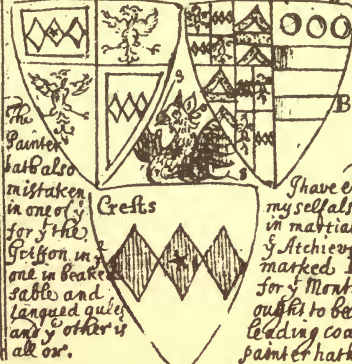 S
B
The
Painter
hath also
mistaken
in one of yͤ
Crests
S
for yͤ the
Griffon, in yͤ
one in beake
sable and
langued gules
and yͤ other is
all or.
I have e
my self als
in martial
yͤ Atchiev
marked
for yͤ Mont
ought to be
leading coa
painter hath